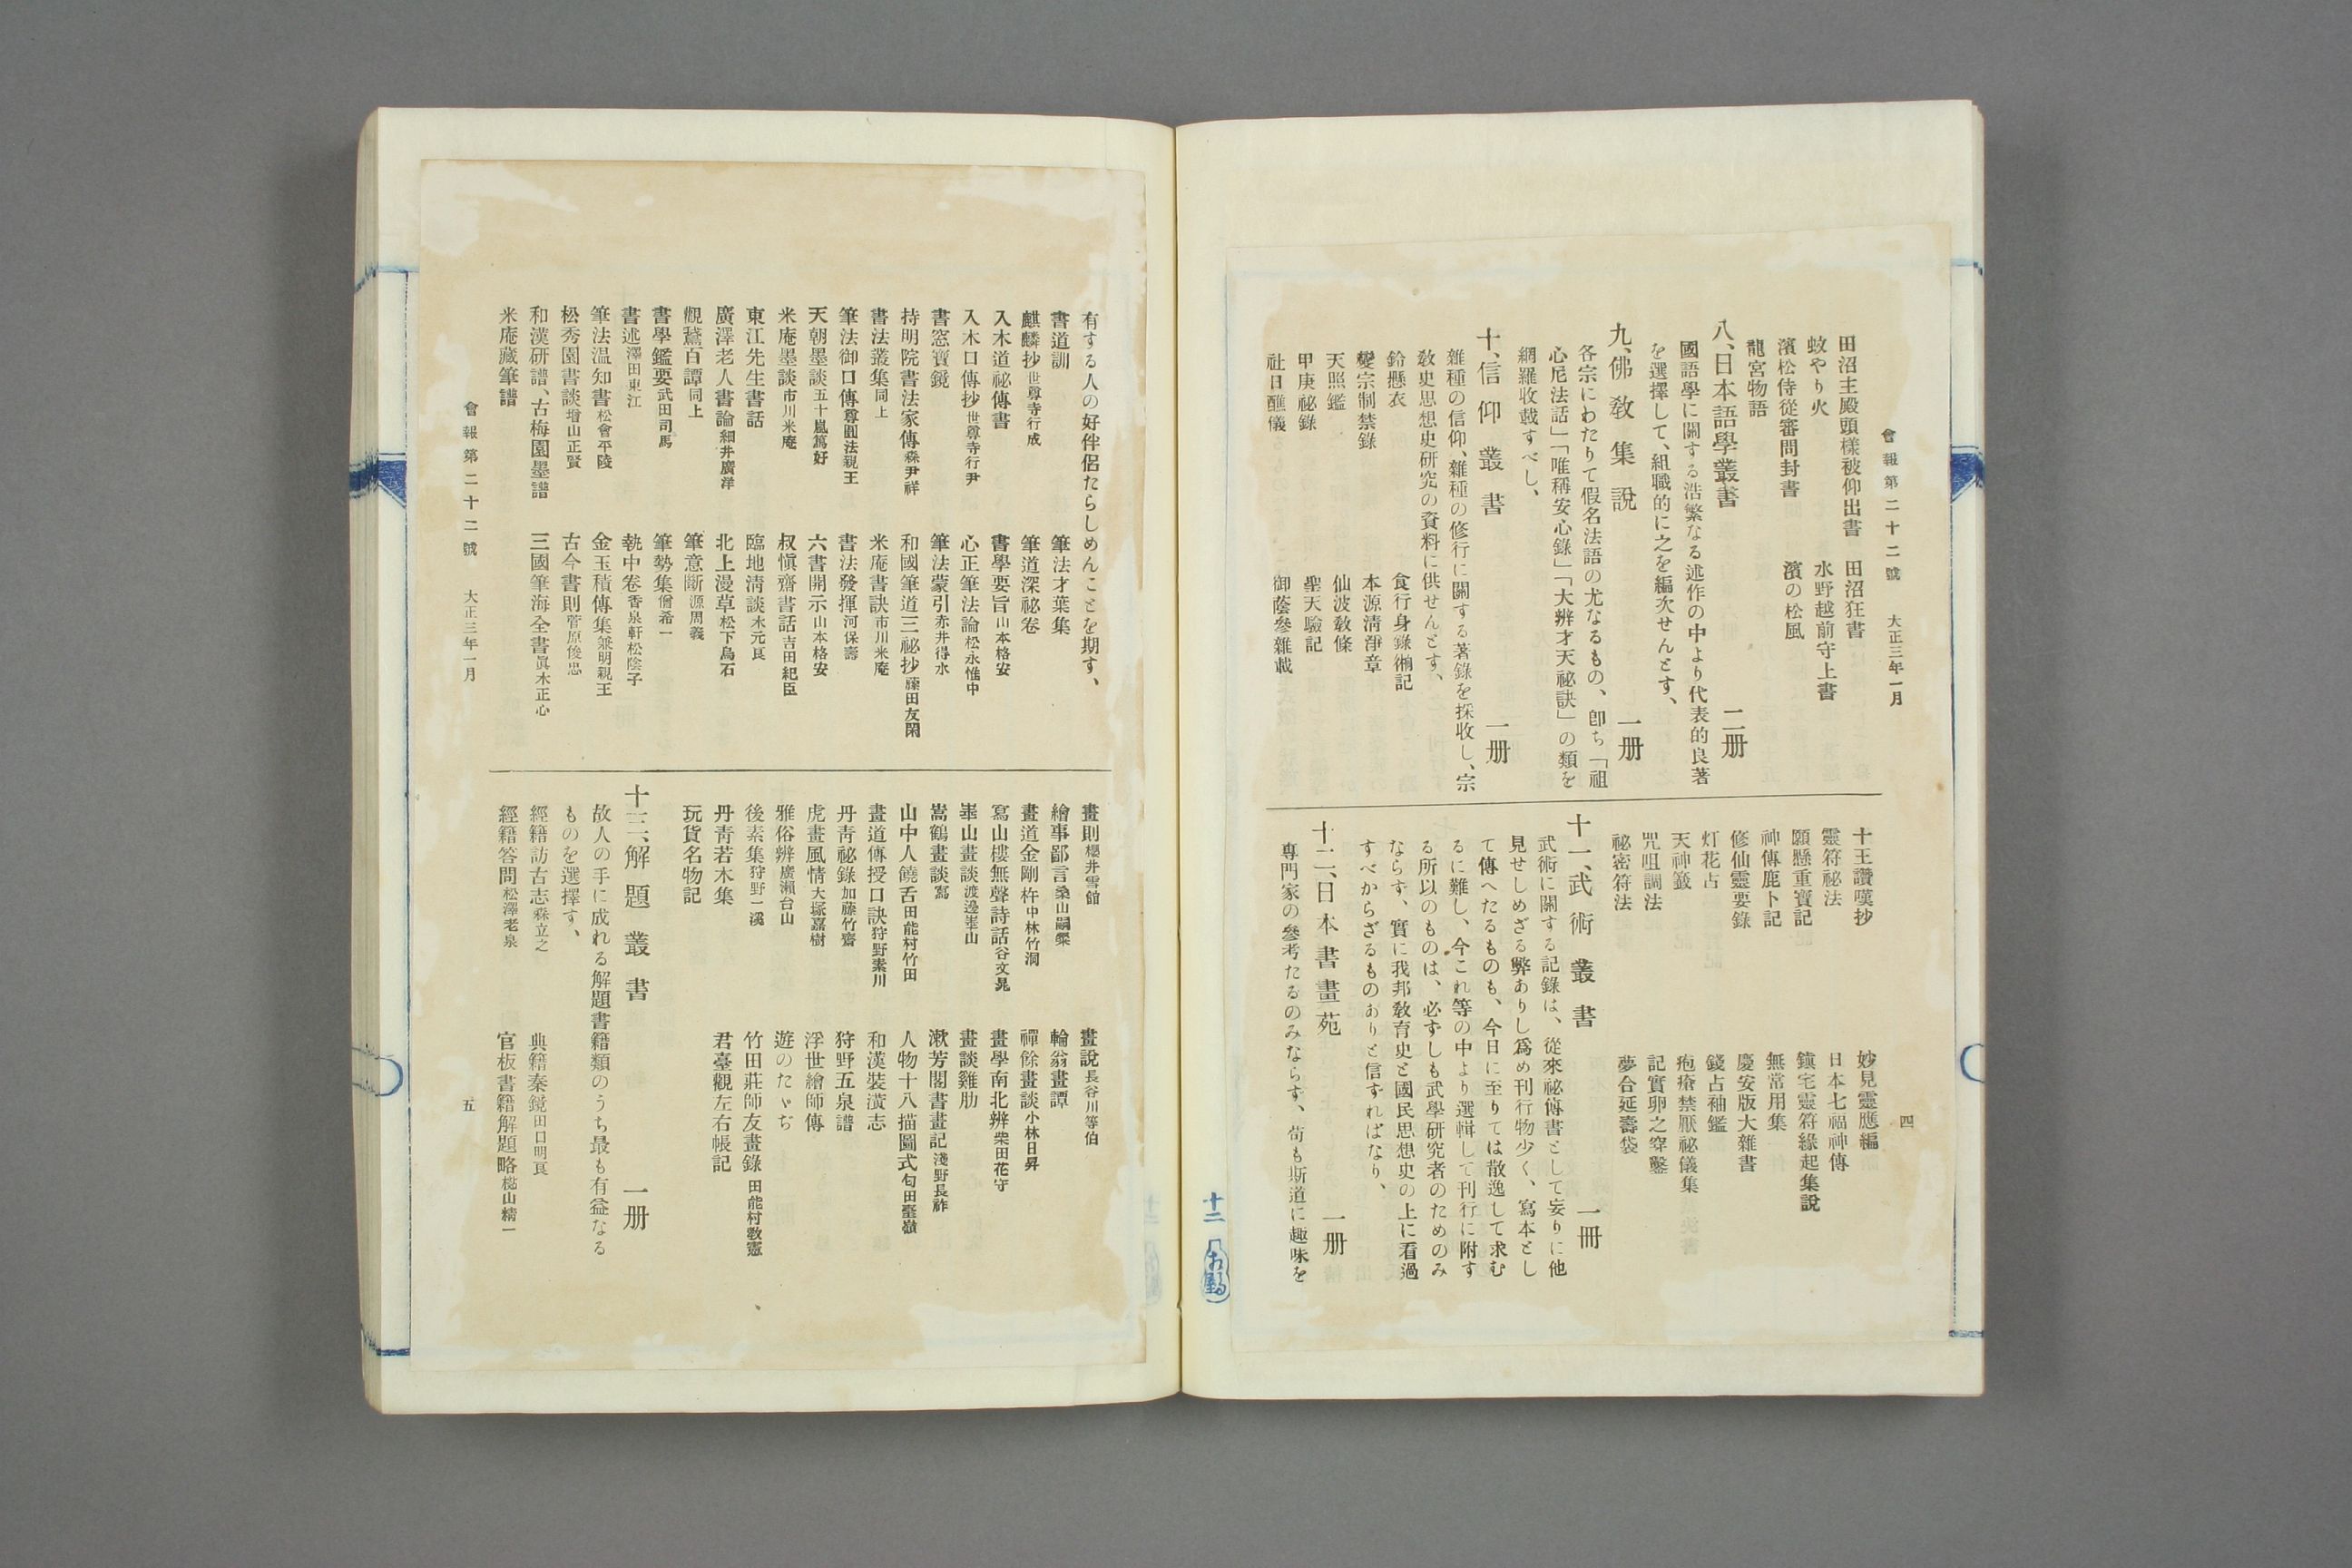 會報第二十二號　大正三年一月
四
田沼主殿頭樣被仰出書　田沼狂書
蚊やり火　水野越前守上書
濱松侍從審問封書　濱の松風
龍宮物語
八、日本語學叢書　二册
國語學に關する浩繁なる述作の中より代表的良著
を選擇して、組職的に之を編次せんとす、
九、佛敎集說　一册
各宗にわたりて假名法語の尤なるもの、卽ち「祖
心尼法話」「唯稱安心錄」「大辨才天祕訣」の類を
網羅收載すべし、
十、信仰叢書　一册
雜種の信仰、雜種の修行に關する著錄を採收し、宗
敎史思想史硏究の資料に供せんとす、
鈴懸衣　食行身錄抔記
變宗制禁錄　本源淸淨章
天照鑑　仙波敎條
甲庚祕錄　聖天驗記
社日醮儀　御蔭參雜載
十王讚嘆抄　妙見靈應編
靈符祕法　日本七福神傳
願懸重寶記　鎭宅靈符緣起集說
神傳鹿卜記　無常用集
修仙靈要錄　慶安版大雜書
灯花占　錢占袖鑑
天神籤　疱瘡禁厭祕儀集
咒咀調法　記實卵之穿鑿
祕密符法　夢合延壽袋
十一、武術叢書　一冊
武術に關する記錄は、從來祕傳書として妄りに他
見せしめざる弊ありし爲め刊行物少く、寫本とし
て傳へたるものも、今日に至りては散逸して求む
るに難し、今これ等の中より選輯して刊行に附す
る所以のものは、必ずしも武學硏究者のためのみ
ならす、實に我邦敎育史と國民思想史の上に看過
すべからざるものありと信ずればなり、
十二、日本書畫苑　一册
專門家の參考たるのみならす、苟も斯道に趣味を
十二
有する人の好伴侶たらしめんことを期す、
書道訓　筆法才葉集
麒麟抄 世尊寺行成　筆道深祕卷
入木道祕傳書　書學要旨 山本格安
入木口傳抄 世尊寺行尹　心正筆法論 松永惟中
書窓寶鏡　筆法蒙引 赤井得水
持明院書法家傳 森尹祥　和國筆道三祕抄 藤田友閑
書法叢集 同上　米庵書訣 市川米庵
筆法御口傳 尊圓法親王　書法發揮 河保壽
天朝墨談 五十嵐篤好　六書開示 山本格安
米庵墨談 市川米庵　叔愼齋書話 吉田紀臣
東江先生書話　臨地淸談 木元良
廣澤老人書論 細井廣澤　北上漫草 松下烏石
觀鵞百譚 同上　筆意斷 源周義
書學鑑要 武田司馬　筆勢集 僧希一
書述 澤田東江　執中卷 香泉軒松陰子
筆法温知書 松會平陵　金玉積傳集 兼明親王
松秀園書談 增山正賢　古今書則 菅原俊忠
和漢硏譜、古梅園墨譜　三國筆海全書 眞木正心
米庵藏筆譜
畫則 櫻井雪館　畫說 長谷川等伯
繪事鄙言 桑山嗣粲　輪翁畫譚
畫道金剛杵 中林竹洞　禪餘畫談 小林日昇
寫山樓無聲詩話 谷文晁　畫學南北辨 柴田花守
崋山畫談 渡邊崋山　畫談雞肋
嵩鶴畫談 寫　漱芳閣書畫記 淺野長祚
山中人饒舌 田能村竹田　人物十八描圖式 匂田臺嶺
畫道傳授口訣 狩野素川　和漢裝潢志
丹靑祕錄 加藤竹齋　狩野五泉譜
虎畫風情 大塚嘉樹　浮世繪師傳
雅俗辨 廣瀨台山　遊のたゝぢ
後素集 狩野一溪　竹田莊師友畫錄 田能村敎憲
丹靑若木集　君臺觀左右帳記
玩貨名物記
十三、解題叢書　一册
故人の手に成れる解題書籍類のうち最も有益なる
ものを選擇す、
經籍訪古志 森立之　典籍秦鏡 田口明良
經籍答問 松澤老泉　官板書籍解題略 杉山精一
會報第二十二號　大正三年一月
五